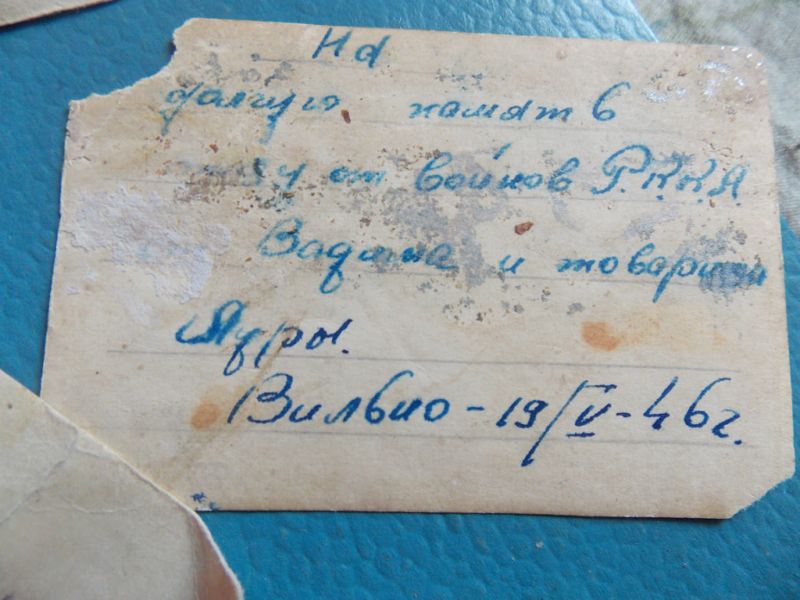 На
долгую память
от воинов Р.К.К.А.
Вадима и товарища
Юры.
Вильно - 19/V - 46 г.